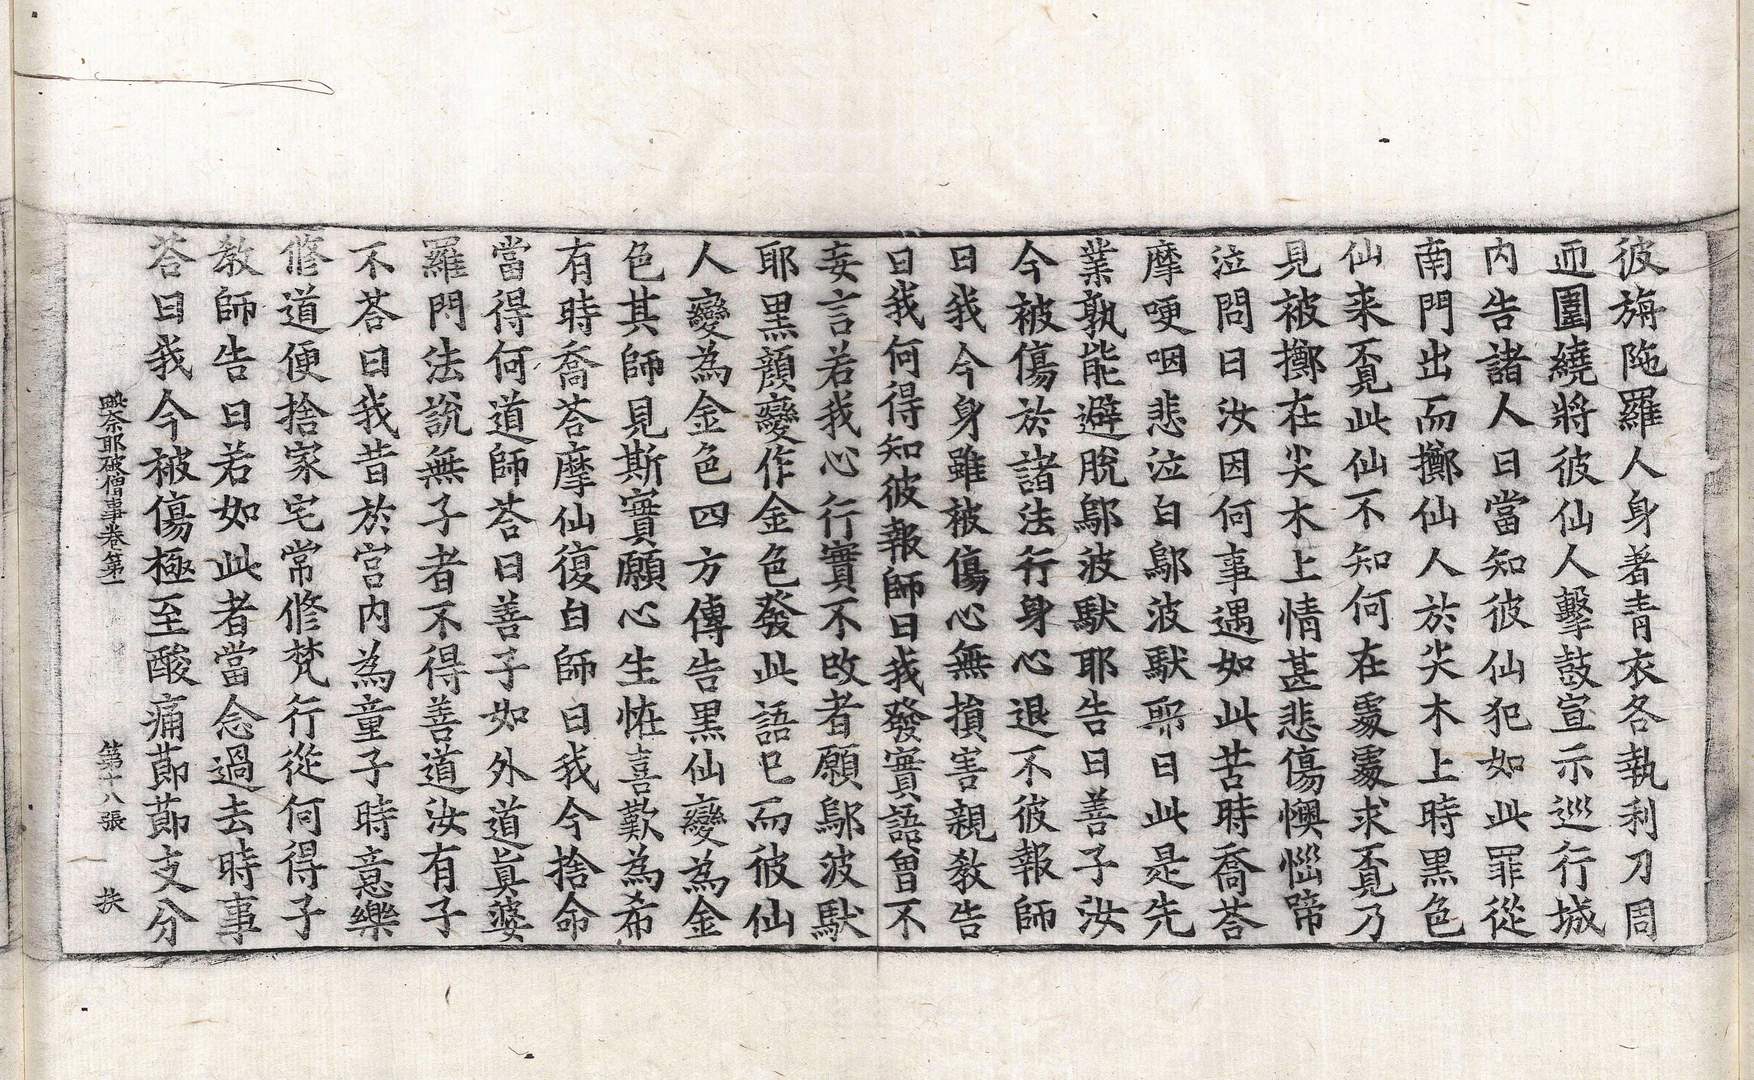 彼旃陁羅人身著青衣各執利刀周
迊圍繞將彼仙人擊鼓宣示巡行城
内告諸人曰當知彼仙犯如此罪從
南門出而擲仙人於尖木上時黒色
仙来覓此仙不知何在處處求覓乃
見被擲在尖木上情甚悲傷懊惱啼
泣問曰汝因何事遇如此苦時喬荅
摩哽咽悲泣白鄔波馱耶曰此是先
業孰能避脫鄔波馱耶告曰善子汝
今被傷於諸法行身心退不彼報師
曰我今身雖被傷心無損害親教告
曰我何得知彼報師曰我發實語曾不
妄言若我心行實不改者願鄔波馱
耶黒顔變作金色發此語已而彼仙
人變為金色四方傳告黒仙變為金
色其師見斯實願心生恠喜歎為希
有時喬荅摩仙復白師曰我今捨命
當得何道師荅曰善子如外道真婆
羅門法說無子者不得善道汝有子
不荅曰我昔於宫内為童子時意樂
修道便捨家宅常修梵行從何得子
教師告曰若如此者當念過去時事
荅曰我今被傷極至酸痛莭莭支分
毗奈耶破僧事卷第一 第十八張 扶